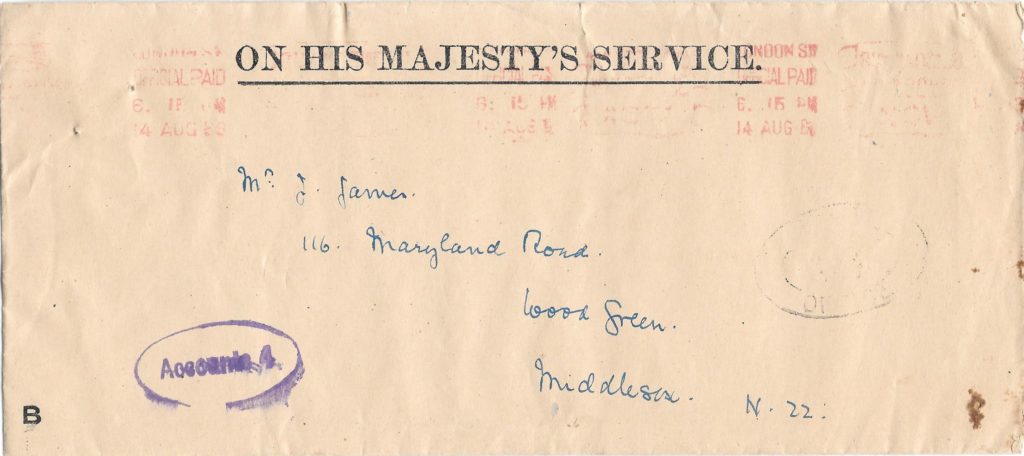 ON HIS MAJESTY'S SERVICE.
LONDON SW
OFFICIAL PAID
6. 15 PM
14 AUG
6. 15 PM
14 AUG
LONDON SW
OFFICIAL PAID
6. 15 PM
14 AUG
Mr J. James.
116. Maryland Road.
Wood Green.
Middlesex. N. 22.
Accounts 4.
B